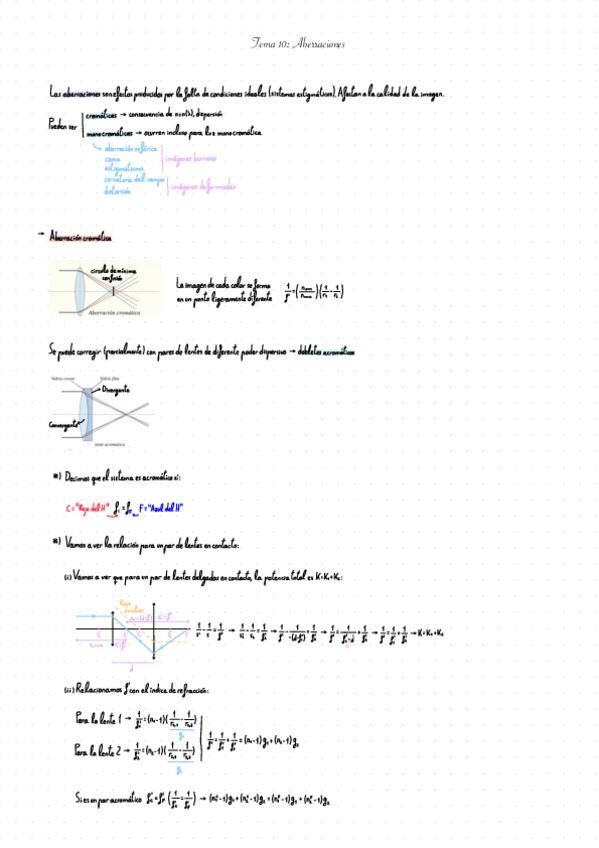 Tema 10: Aberraciones
Las aberraciones son efectos producidos por la falta de condiciones ideales (sistemas estigmáticos). Afectan a la calidad de la imagen.
Pueden ser
cromáticas → consecuencia de n=n(λ), dispersión
monocromáticas → ocurren incluso para luz monocromática
aberración esférica
coma
astigmatismo
imágenes borrosas
curvatura del campo
distorsión
imágenes deformadas
→ Aberración cromática
círculo de mínima confusión
Aberración cromática
La imagen de cada color se forma
en un punto ligeramente diferente
Se puede corregir (parcialmente) con pares de lentes de diferente poder dispersivo → dobletes acromáticos
Vidrio crown
Vidrio flint
Divergente
Convergente
lente acromática
*) Decimos que el sistema es acromático si:
C = "Rojo del H" F = "Azul del H"
*) Vamos a ver la relación para un par de lentes en contacto:
(i) Vamos a ver que para un par de lentes delgadas en contacto, la potencia total es K=K₁+K₂:
d
→ K=K₁+K₂
(ii) Relacionamos f' con el índice de refracción:
Para la lente 1 →
Para la lente 2 →
= (n₁-1)g₁+(n₂-1)g₂
Si es un par acromático